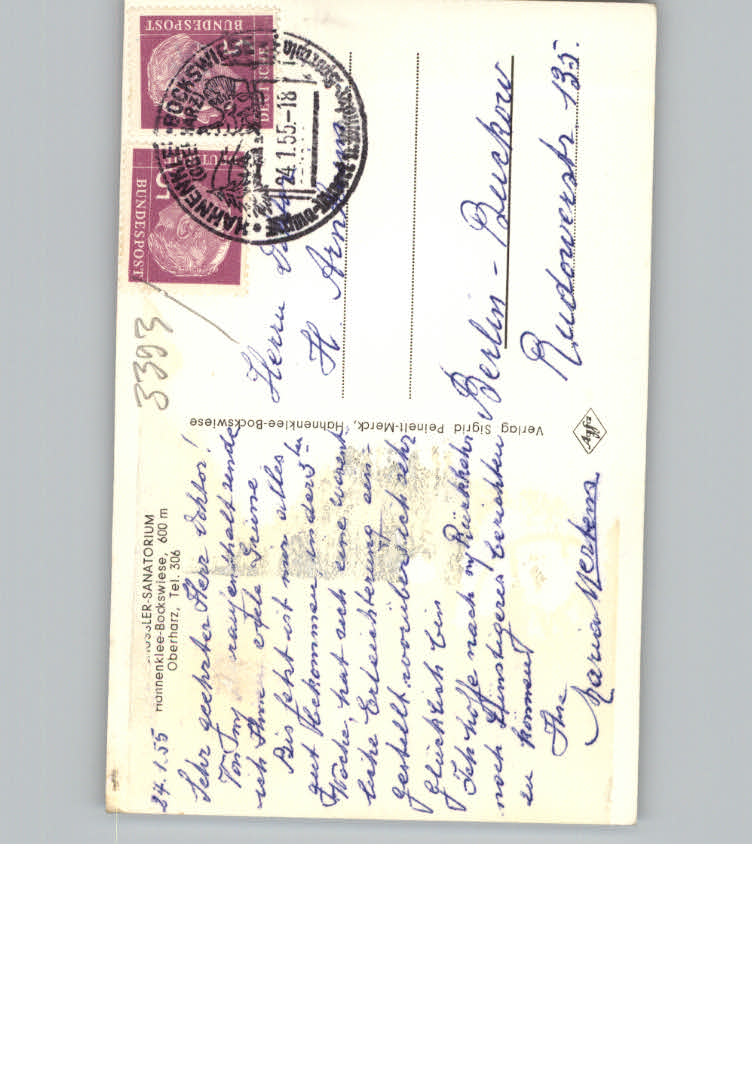 SANATORIUM
Hahnenklee-Bockswiese, 600 m
Oberharz, Tel. 306
24.1.55
Sehr geehrter Herr Doktor!
Vom
ich Ihnen Grüsse
Bis jetzt ist mir alles
gut bekommen
Woche hat sich eine wesent-
liche Erleichterung ein-
gestellt, worüber ich sehr
glücklich bin
Ich hoffe nach m/ Rückkehr
noch Günstigeres berichten
zu können
Ihre
Maria Mertens
Verlag Sigrid Peinelt-Merck, Hahnenklee-Bockswiese
3393
DEUTSCHE
BUNDESPOST
BUNDESPOST
HAHNENKLEE-BOCKSWIESE
24.1.55.-18
Herrn Doktor
H.
Berlin-Buckow
Rudowerstr 135.